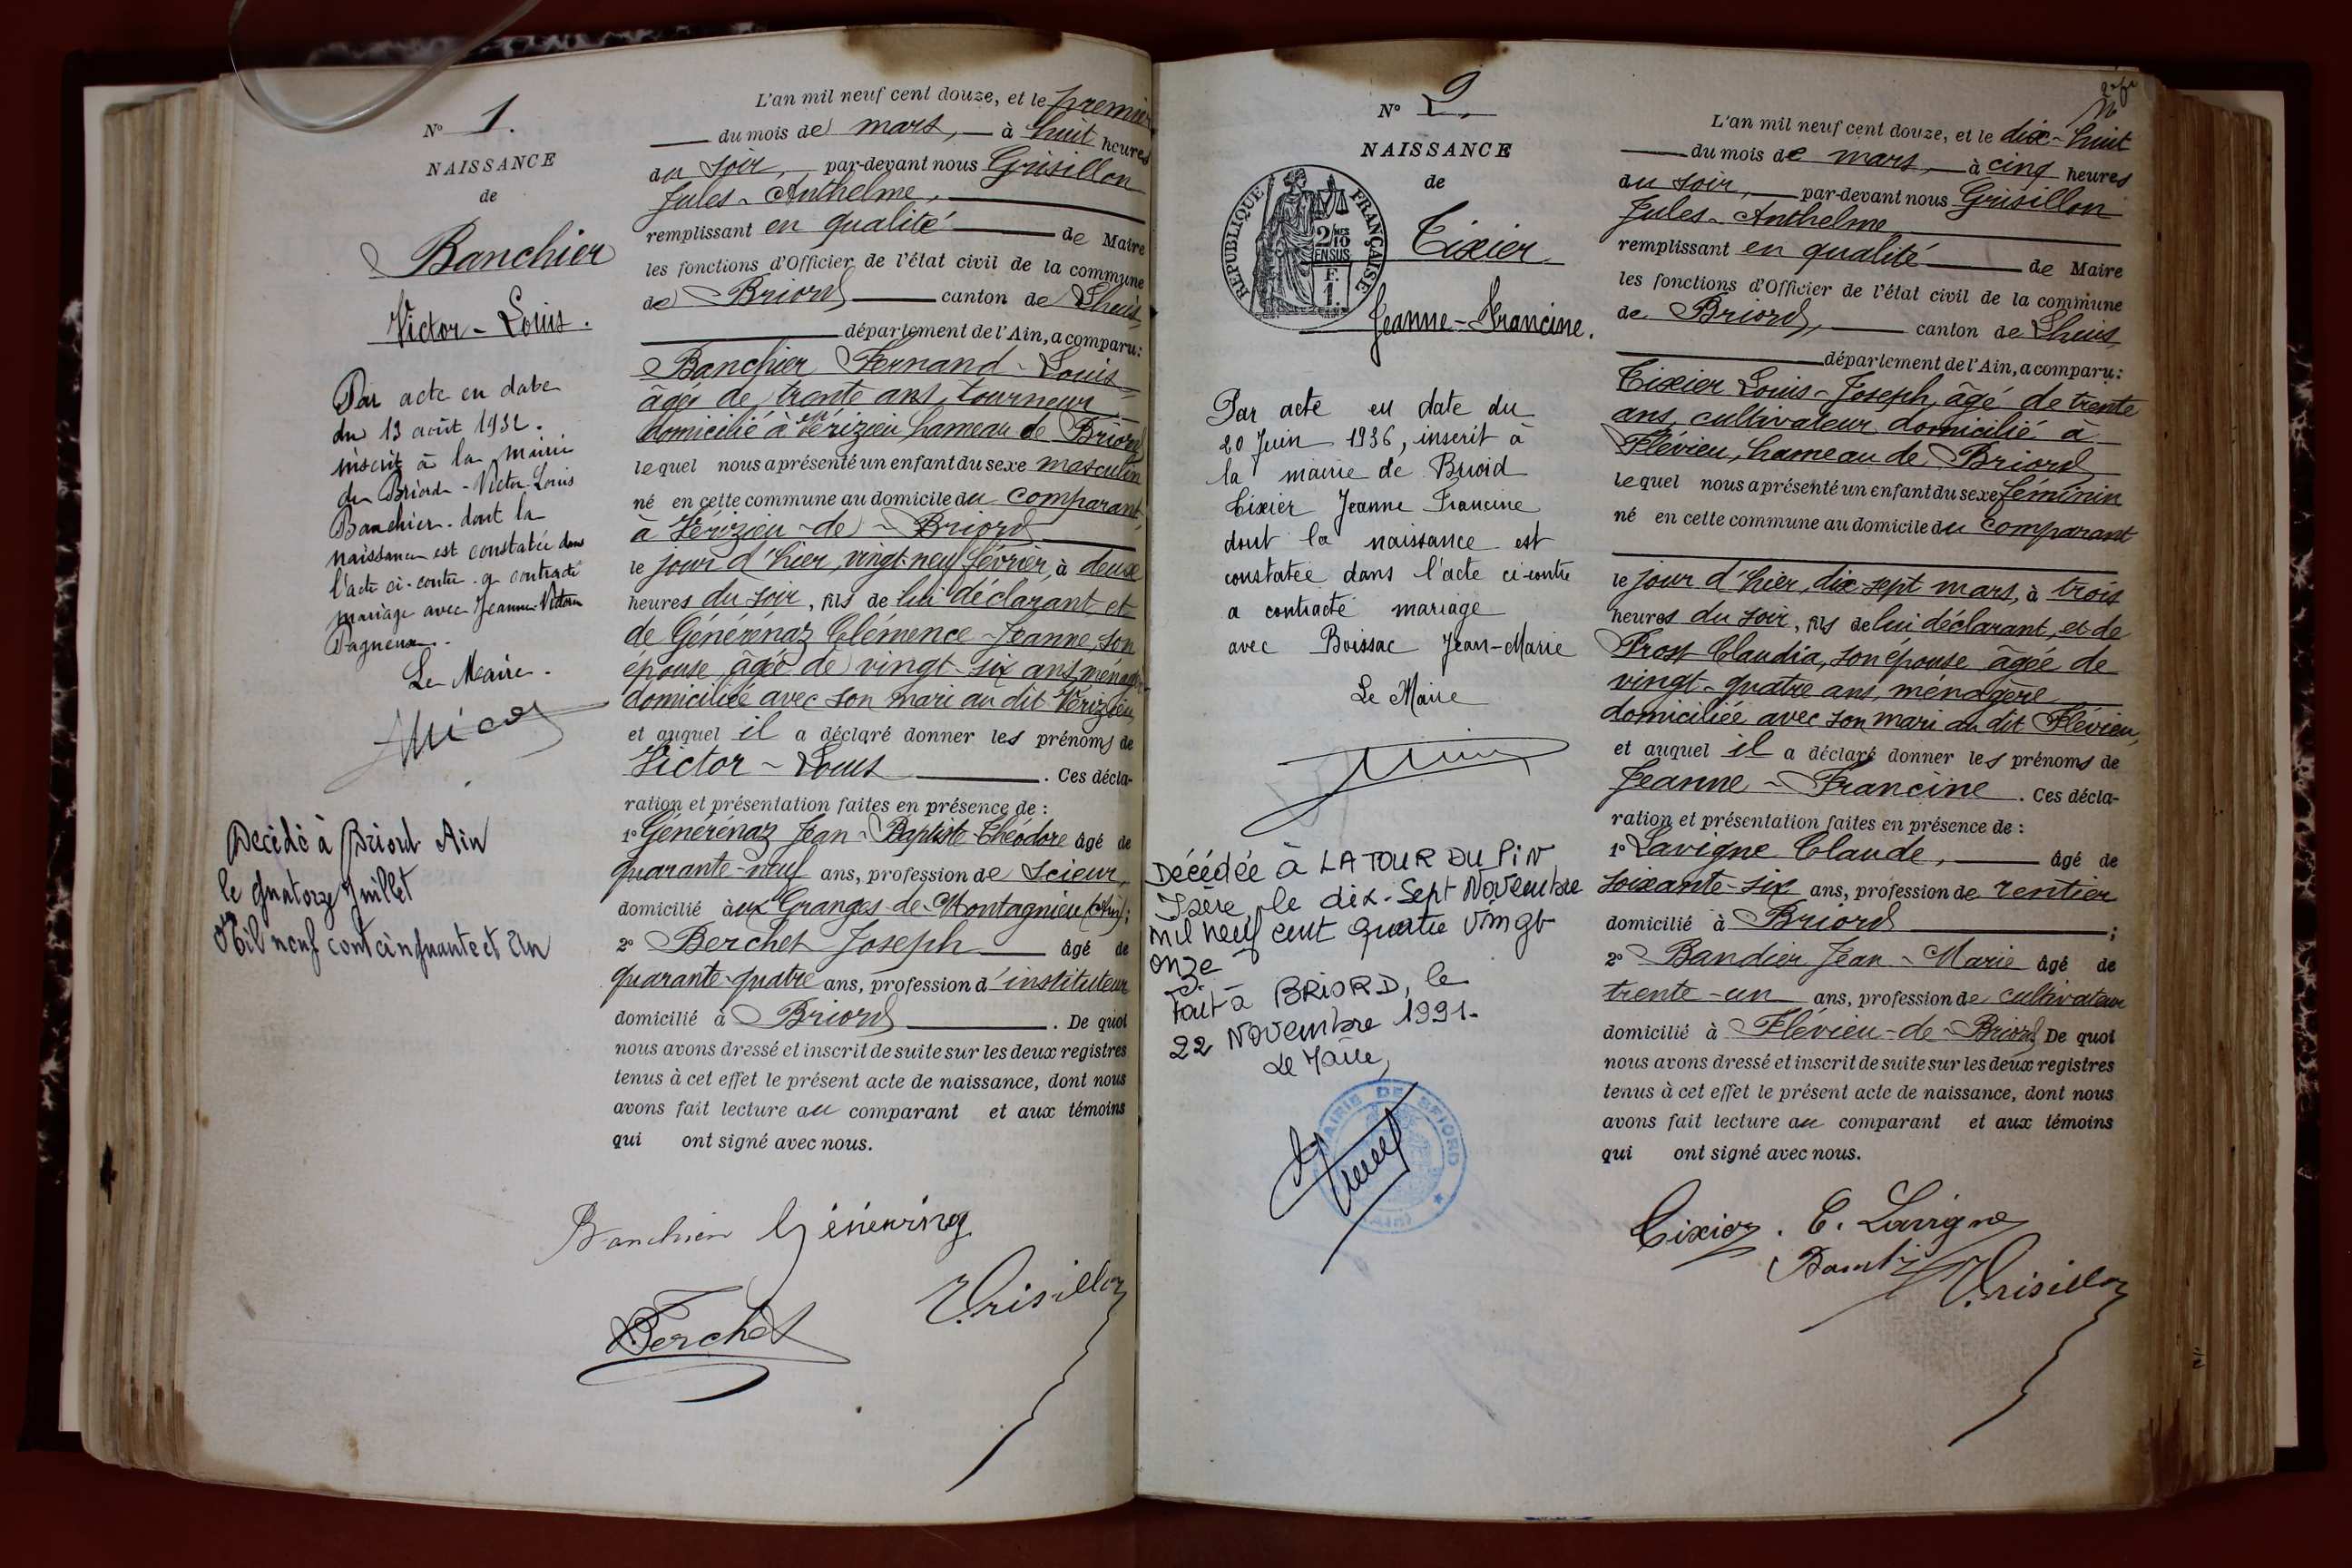 N° 1.
NAISSANCE
de
Banchier
Victor-Louis.
Par acte en date
du 13 août 1932.
inscrit à la mairie
de Briord - Victor Louis
Banchier. dont la
naissance est constatée dans
l'acte ci-contre a contracté
mariage avec Jeanne Victorine
Dagneux.
Le Maire.
Décédé à Briord Ain
le quatorze Juillet
Mil neuf cent cinquante et un
L'an mil neuf cent douze, et le premier
du mois de mars, à huit heures
du soir, par-devant nous Grisillon
Jules-Anthelme,
remplissant en qualité de Maire
les fonctions d'Officier de l'état civil de la commune
de Briord canton de Lhuis,
département de l'Ain, a comparu:
Banchier Fernand-Louis
âgé de trente ans, tourneur
domicilié à Vérizieu hameau de Briord
lequel nous a présenté un enfant du sexe masculin
né en cette commune au domicile du comparant,
à Vérizeu-de-Briord
le jour d'hier, vingt-neuf février, à deux
heures du soir, fils de lui déclarant et
de Générénaz Clémence-Jeanne, son
épouse âgée de vingt-six ans, ménagère
domiciliée avec son mari au dit Vérizieu,
et auquel il a déclaré donner les prénoms de
Victor-Louis. Ces décla-
ration et présentation faites en présence de :
1° Générénaz Jean-Baptiste-Théodore âgé de
quarante-neuf ans, profession de scieur,
domicilié aux Granges-de-Montagnieu (Ain);
2° Berchet Joseph âgé de
quarante-quatre ans, profession d'instituteur
domicilié à Briord. De quoi
nous avons dressé et inscrit de suite sur les deux registres
tenus à cet effet le présent acte de naissance, dont nous
avons fait lecture au comparant et aux témoins
qui ont signé avec nous.
Banchier Générénaz
Grisillon
Berchet
N° 2.
NAISSANCE
de
RÉPUBLIQUE FRANÇAISE
2/10 MES
EN SUS
F.
1.
Tixier
Jeanne-Francine.
Par acte en date du
20 Juin 1936, inscrit à
la mairie de Briord
Tixier Jeanne Francine
dont la naissance est
constatée dans l'acte ci-contre
a contracté mariage
avec Boissac Jean-Marie
Le Maire
Décédée à LA TOUR DU PIN
Isère, le dix-Sept Novembre
mil neuf cent quatre vingt
onze
Fait à BRIORD, le
22 Novembre 1991.
Le Maire,
MAIRIE DE BRIORD
(Ain)
L'an mil neuf cent douze, et le dix-huit
du mois de mars, à cinq heures
du soir, par-devant nous Grisillon
Jules-Anthelme
remplissant en qualité de Maire
les fonctions d'Officier de l'état civil de la commune
de Briord, canton de Lhuis,
département de l'Ain, a comparu:
Tixier Louis-Joseph, âgé de trente
ans, cultivateur domicilié à
Flévieu, hameau de Briord
lequel nous a présenté un enfant du sexe féminin
né en cette commune au domicile du comparant
le jour d'hier, dix-sept mars, à trois
heures du soir, fils de lui déclarant, et de
Prost Claudia, son épouse âgée de
vingt-quatre ans, ménagère
domiciliée avec son mari au dit Flévieu,
et auquel il a déclaré donner les prénoms de
Jeanne-Francine. Ces décla-
ration et présentation faites en présence de :
1° Lavigne Claude, âgé de
soixante-six ans, profession de rentier
domicilié à Briord;
2° Bandier Jean-Marie âgé de
trente-un ans, profession de cultivateur
domicilié à Flévieu-de-Briord De quoi
nous avons dressé et inscrit de suite sur les deux registres
tenus à cet effet le présent acte de naissance, dont nous
avons fait lecture au comparant et aux témoins
qui ont signé avec nous.
Tixier. C. Lavigne
Grisillon